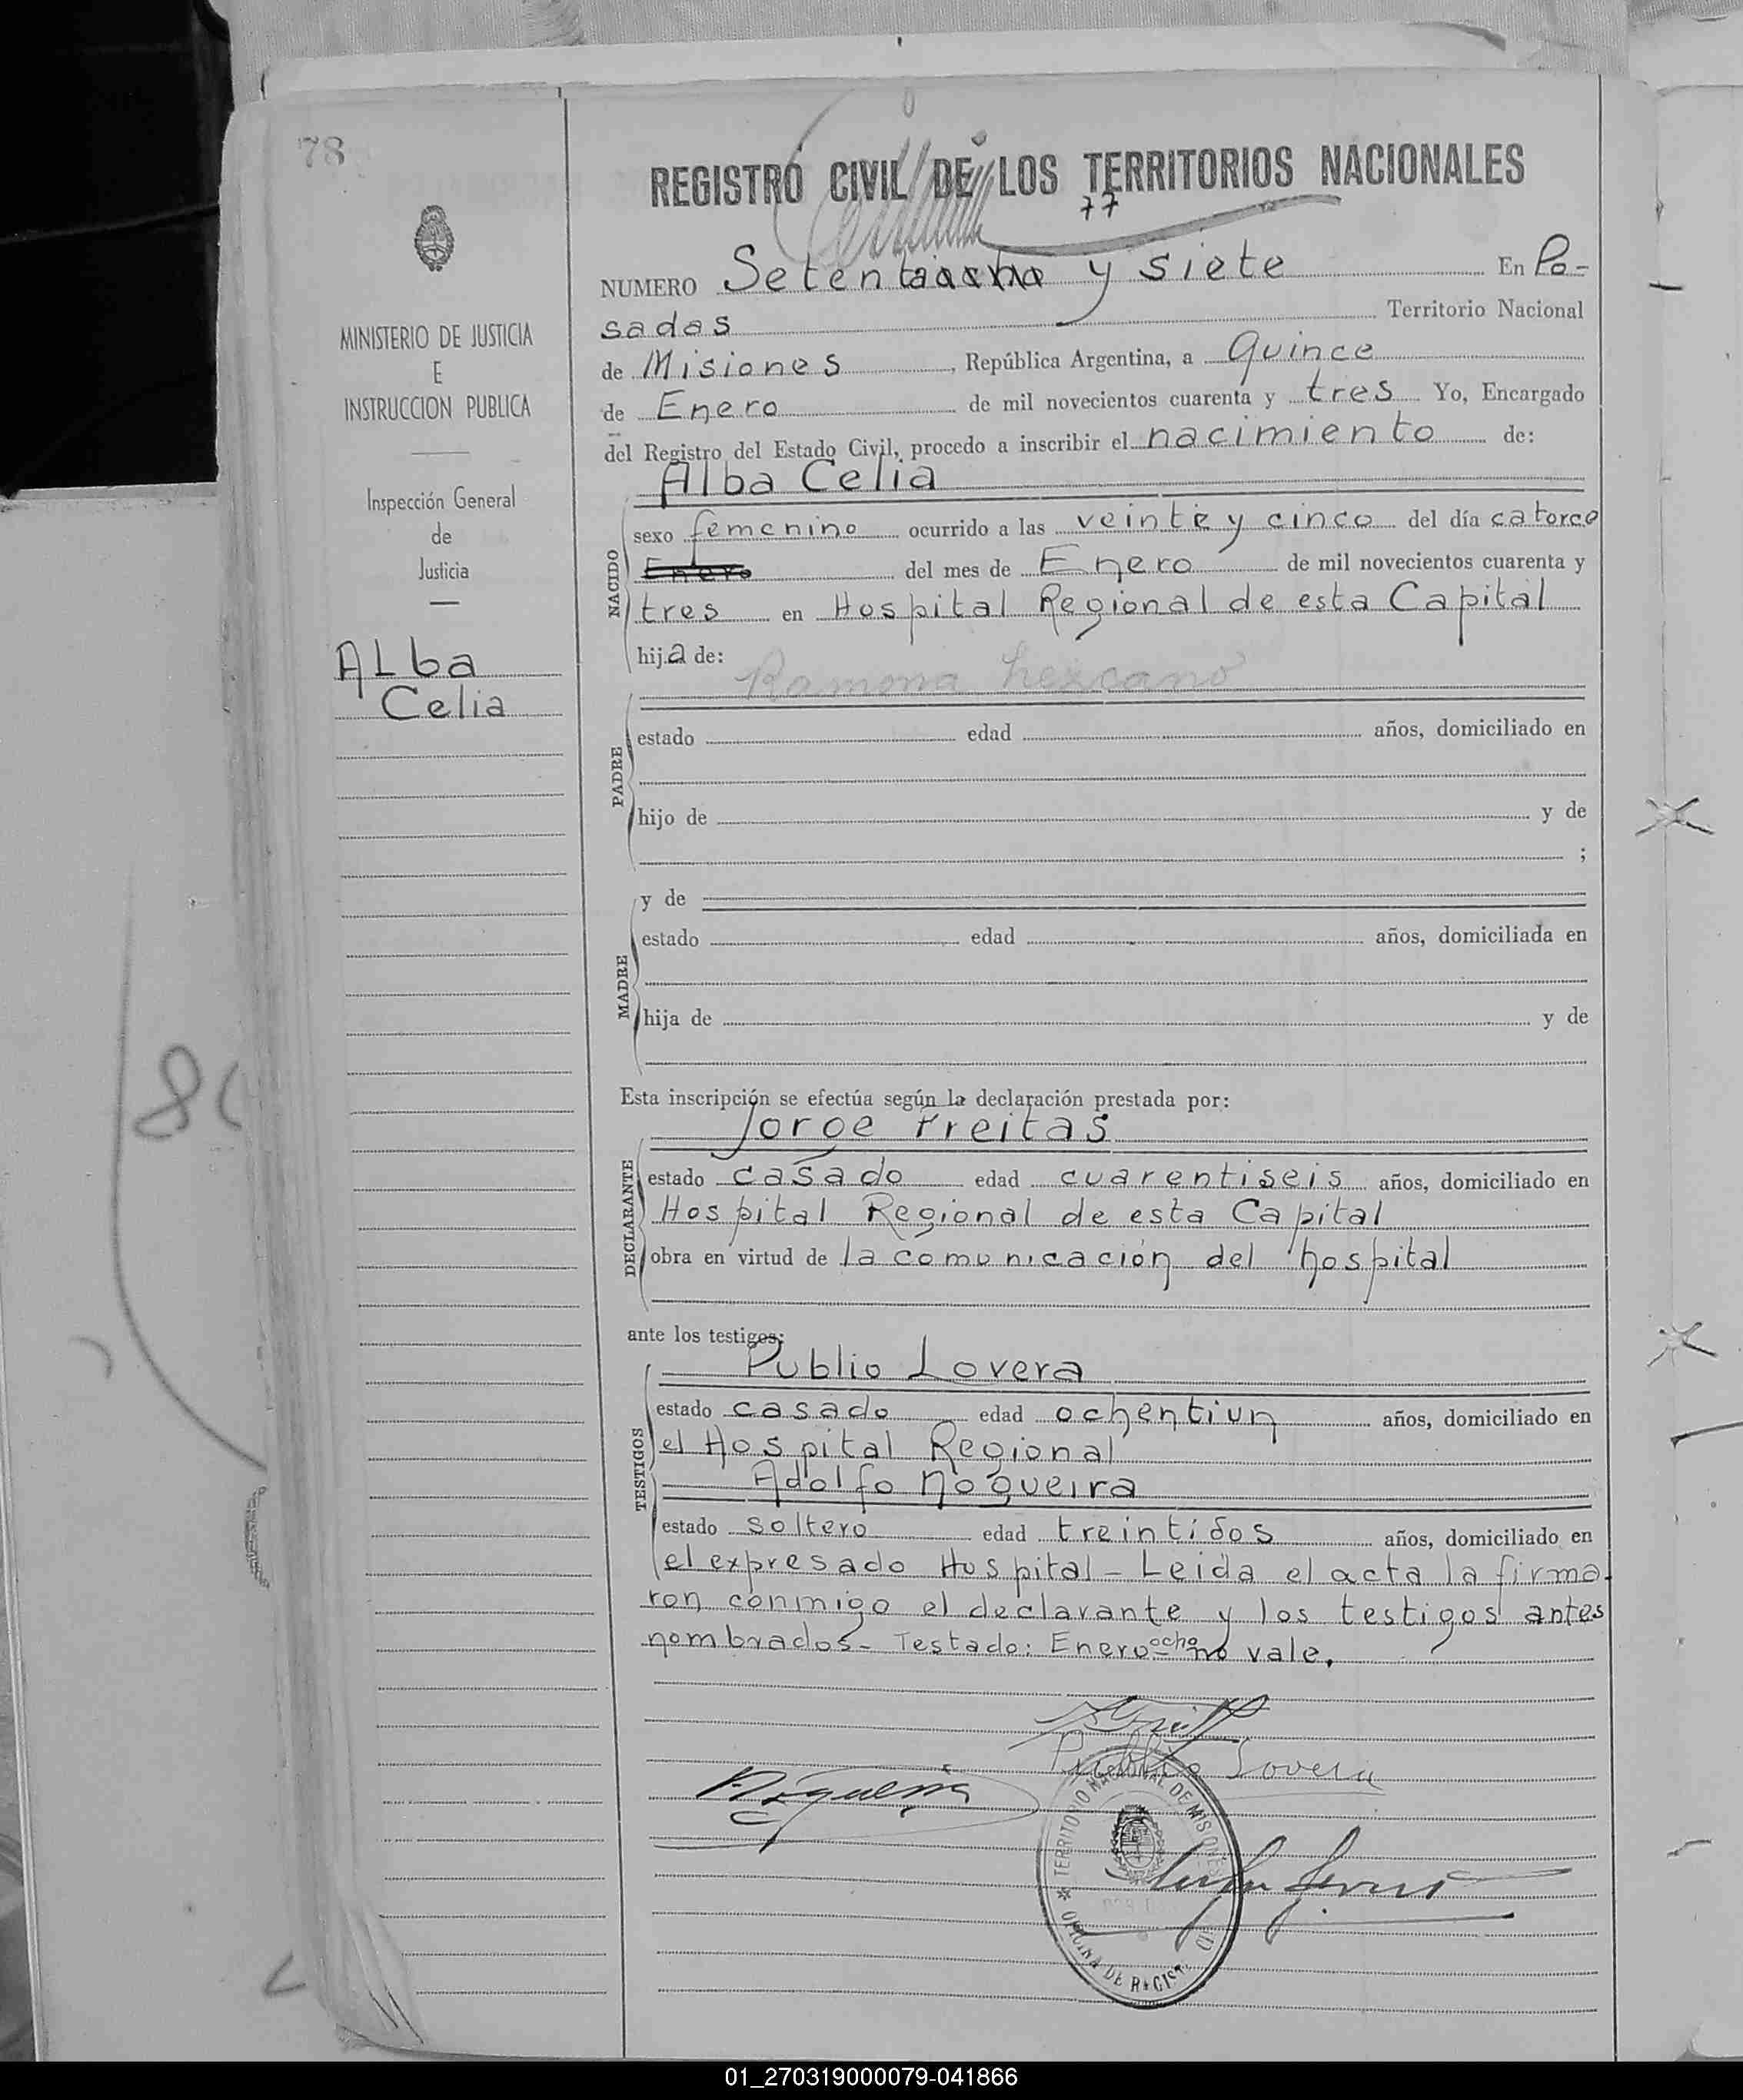 78
REGISTRO CIVIL DE LOS TERRITORIOS NACIONALES
77
NUMERO Setentaocho y siete En Po-
sadas Territorio Nacional
de Misiones, República Argentina, a Quince
de Enero de mil novecientos cuarenta y tres Yo, Encargado
del Registro del Estado Civil, procedo a inscribir el nacimiento de:
Alba Celia
NACIDO
sexo femenino ocurrido a las veinte y cinco del día catorce
Enero del mes de Enero de mil novecientos cuarenta y
tres en Hospital Regional de esta Capital
hija de:
Ramona Lezcano
PADRE
estado edad años, domiciliado en
hijo de y de
;
y de
MADRE
estado edad años, domiciliada en
hija de y de
Esta inscripción se efectúa según la declaración prestada por:
Jorge Freitas
DECLARANTE
estado casado edad cuarentiseis años, domiciliado en
Hospital Regional de esta Capital
obra en virtud de la comunicación del hospital
ante los testigos:
Publio Lovera
TESTIGOS
estado casado edad ochentiun años, domiciliado en
el Hospital Regional
Adolfo Nogueira
estado soltero edad treintidos años, domiciliado en
el expresado Hospital - Leida el acta la firma-
ron conmigo el declarante y los testigos antes
nombrados - Testado: Enero ocho no vale.
Publio Lovera
TERRITORIO NACIONAL DE MISIONES
OFICINA DE REGIST. CIV
MINISTERIO DE JUSTICIA
E
INSTRUCCION PUBLICA
Inspección General
de
Justicia
ALba
Celia
01_270319000079-041866